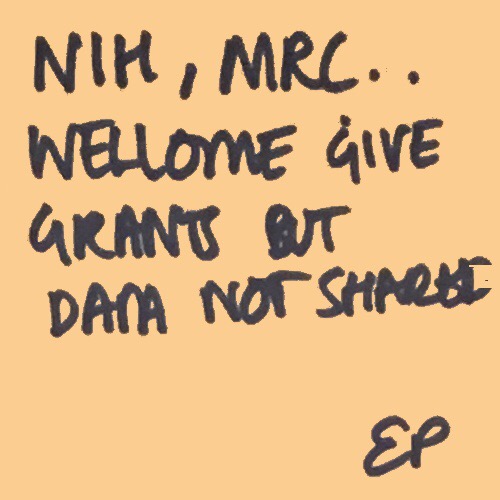 NIH, MRC..
WELLOME GIVE
GRANTS BUT
DATA NOT SHARED
EP